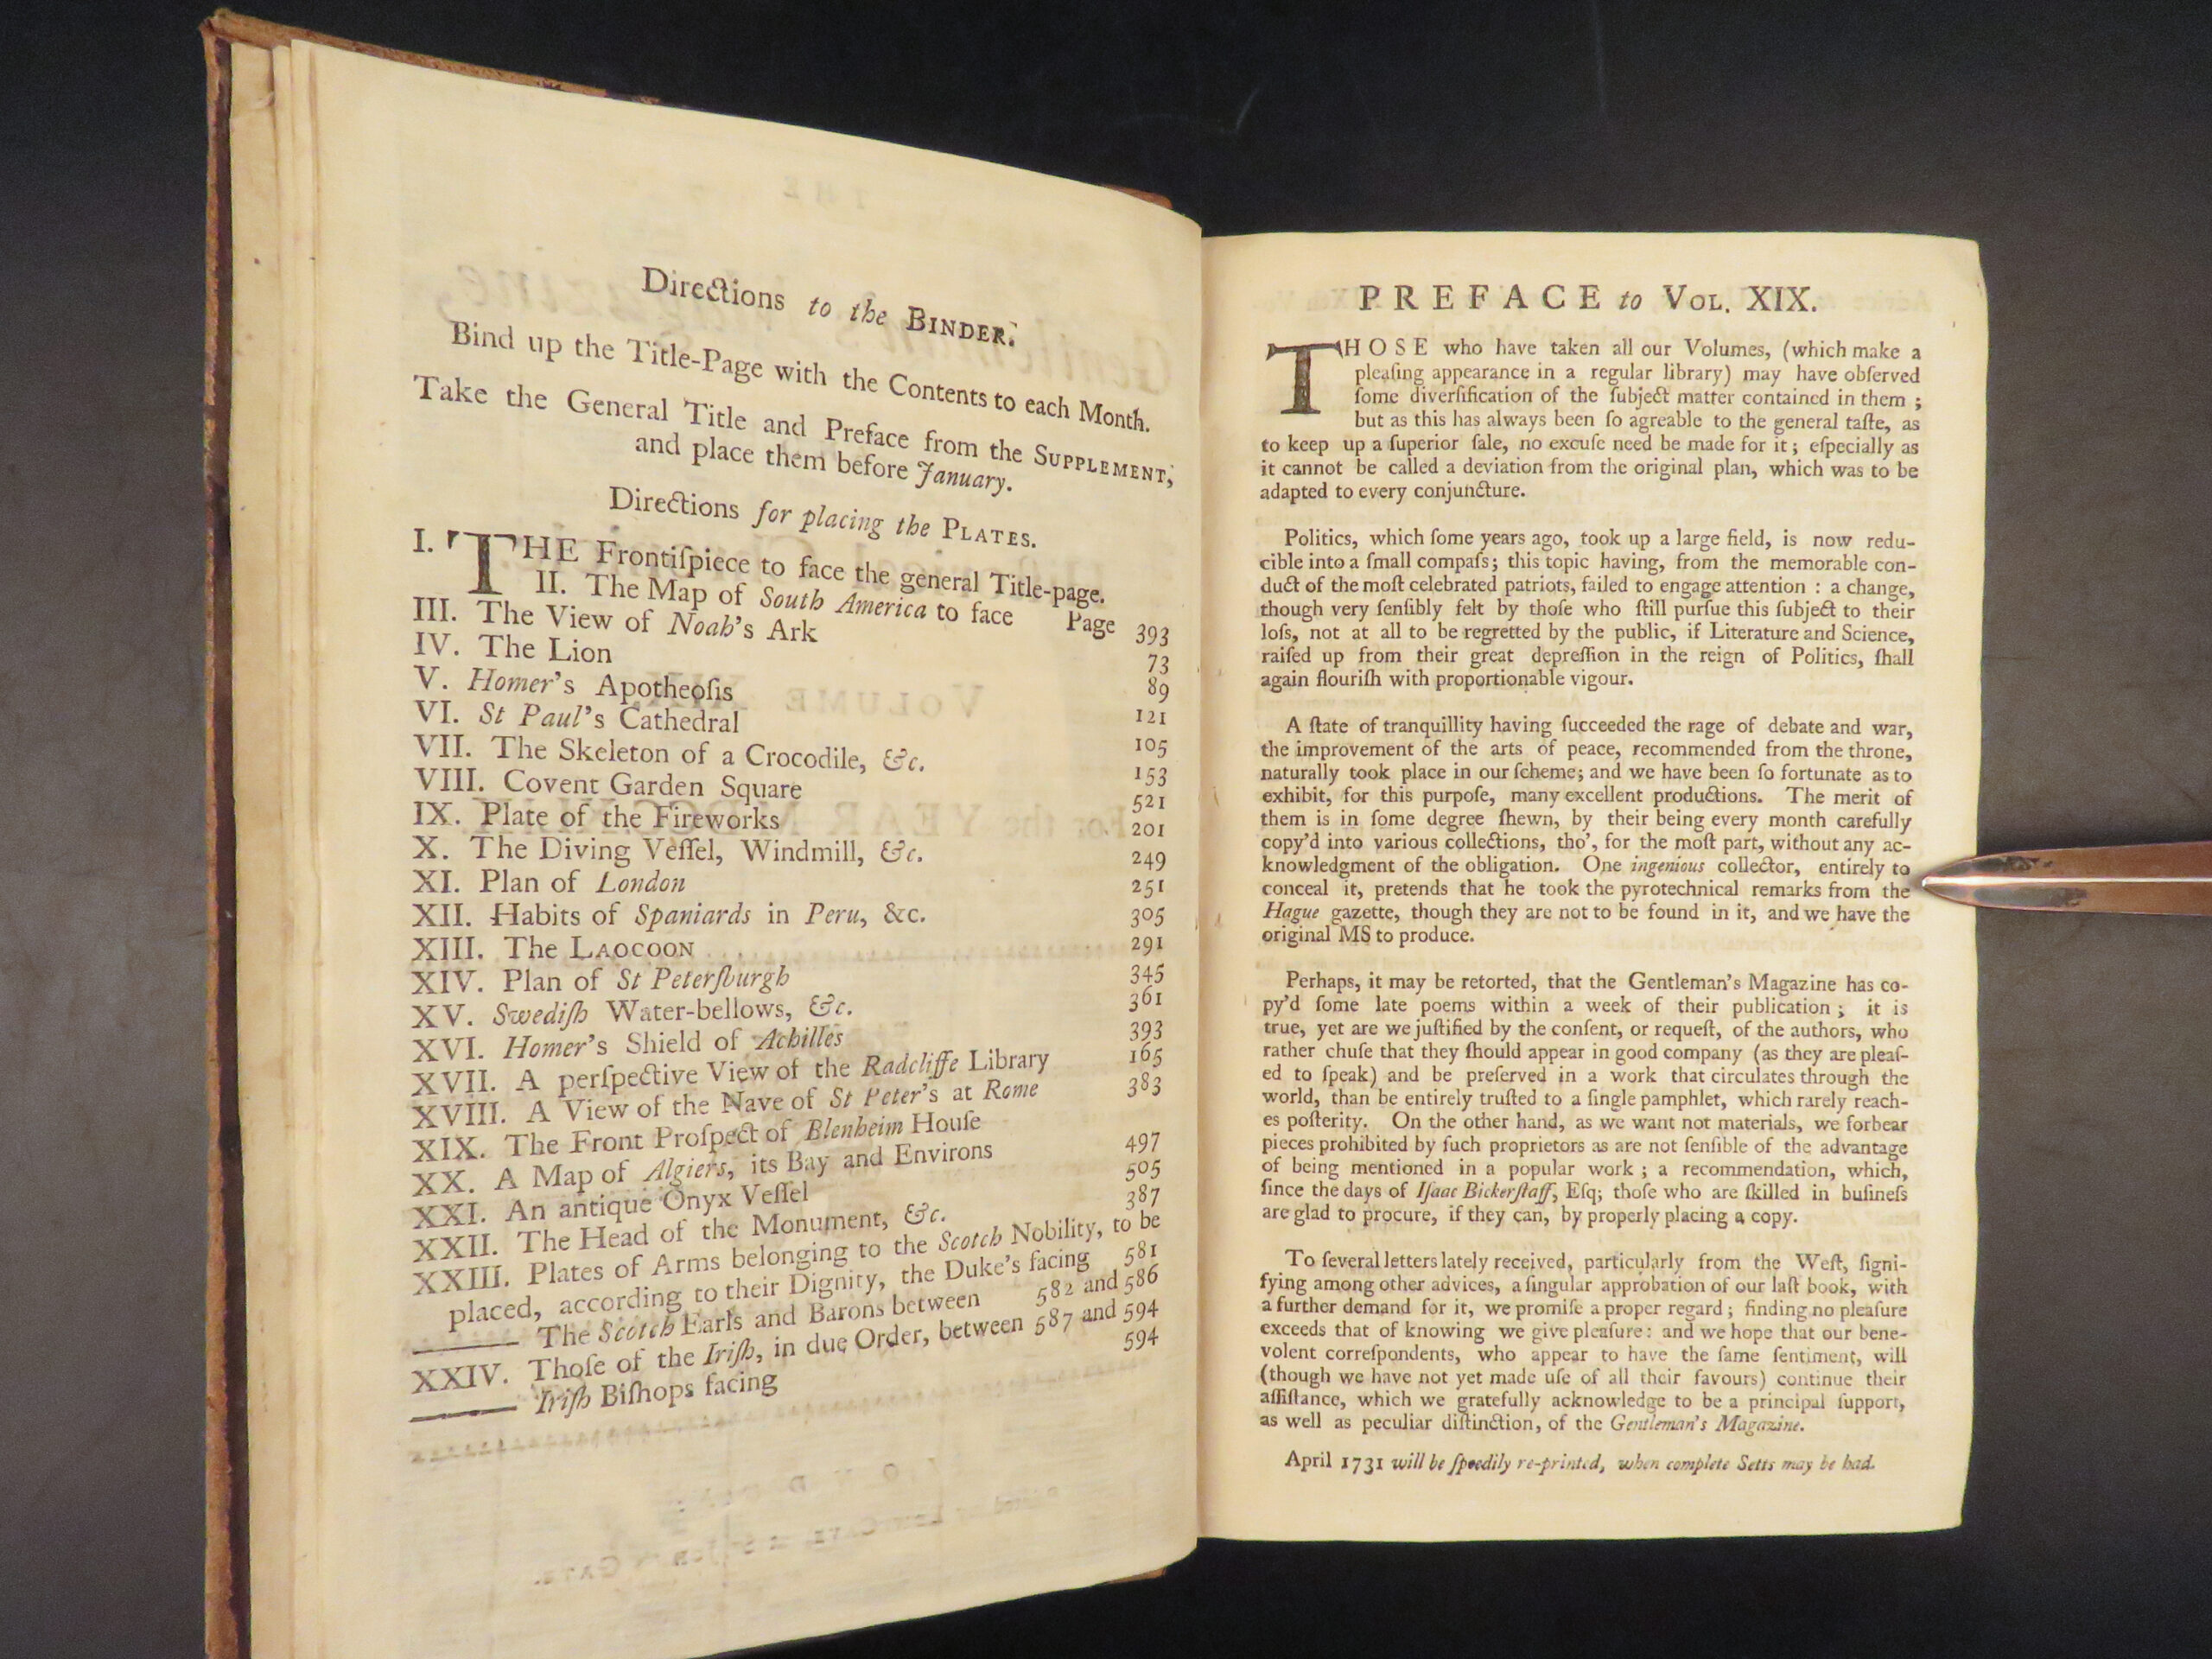 Directions to the BINDER.
Bind up the Title-Page with the Contents to each Month.
Take the General Title and Preface from the SUPPLEMENT,
and place them before January.
Directions for placing the PLATES.
I. THE Frontiſpiece to face the general Title-page.
II. The Map of South America to face Page 393
III. The View of Noah's Ark 73
IV. The Lion 89
V. Homer's Apotheoſis 121
VI. St Paul's Cathedral 105
VII. The Skeleton of a Crocodile, &c. 153
VIII. Covent Garden Square 521
IX. Plate of the Fireworks 201
X. The Diving Veſſel, Windmill, &c. 249
XI. Plan of London 251
XII. Habits of Spaniards in Peru, &c. 305
XIII. The LAOCOON 291
XIV. Plan of St Peterſburgh 345
XV. Swediſh Water-bellows, &c. 361
XVI. Homer's Shield of Achilles 393
XVII. A perſpective View of the Radcliffe Library 165
XVIII. A View of the Nave of St Peter's at Rome 383
XIX. The Front Proſpect of Blenheim Houſe
XX. A Map of Algiers, its Bay and Environs 497
XXI. An antique Onyx Veſſel 505
XXII. The Head of the Monument, &c. 387
XXIII. Plates of Arms belonging to the Scotch Nobility, to be
placed, according to their Dignity, the Duke's facing 581
—— The Scotch Earls and Barons between 582 and 586
XXIV. Thoſe of the Iriſh, in due Order, between 587 and 594
—— Iriſh Biſhops facing 594
PREFACE to VOL. XIX.
THOSE who have taken all our Volumes, (which make a
pleaſing appearance in a regular library) may have obſerved
ſome diverſification of the ſubject matter contained in them ;
but as this has always been ſo agreable to the general taſte, as
to keep up a ſuperior ſale, no excuſe need be made for it; eſpecially as
it cannot be called a deviation from the original plan, which was to be
adapted to every conjuncture.
Politics, which ſome years ago, took up a large field, is now redu-
cible into a ſmall compaſs; this topic having, from the memorable con-
duct of the moſt celebrated patriots, failed to engage attention : a change,
though very ſenſibly felt by thoſe who ſtill purſue this ſubject to their
loſs, not at all to be regretted by the public, if Literature and Science,
raiſed up from their great depreſſion in the reign of Politics, ſhall
again flouriſh with proportionable vigour.
A ſtate of tranquillity having ſucceeded the rage of debate and war,
the improvement of the arts of peace, recommended from the throne,
naturally took place in our ſcheme; and we have been ſo fortunate as to
exhibit, for this purpoſe, many excellent productions. The merit of
them is in ſome degree ſhewn, by their being every month carefully
copy'd into various collections, tho', for the moſt part, without any ac-
knowledgment of the obligation. One ingenious collector, entirely to
conceal it, pretends that he took the pyrotechnical remarks from the
Hague gazette, though they are not to be found in it, and we have the
original MS to produce.
Perhaps, it may be retorted, that the Gentleman's Magazine has co-
py'd ſome late poems within a week of their publication ; it is
true, yet are we juſtified by the conſent, or requeſt, of the authors, who
rather chuſe that they ſhould appear in good company (as they are pleaſ-
ed to ſpeak) and be preſerved in a work that circulates through the
world, than be entirely truſted to a ſingle pamphlet, which rarely reach-
es poſterity. On the other hand, as we want not materials, we forbear
pieces prohibited by ſuch proprietors as are not ſenſible of the advantage
of being mentioned in a popular work ; a recommendation, which,
ſince the days of Iſaac Bickerſtaff, Eſq; thoſe who are ſkilled in buſineſs
are glad to procure, if they can, by properly placing a copy.
To ſeveral letters lately received, particularly from the Weſt, ſigni-
fying among other advices, a ſingular approbation of our laſt book, with
a further demand for it, we promiſe a proper regard ; finding no pleaſure
exceeds that of knowing we give pleaſure: and we hope that our bene-
volent correſpondents, who appear to have the ſame ſentiment, will
(though we have not yet made uſe of all their favours) continue their
aſſiſtance, which we gratefully acknowledge to be a principal ſupport,
as well as peculiar diſtinction, of the Gentleman's Magazine.
April 1731 will be ſpeedily re-printed, when complete Setts may be had.